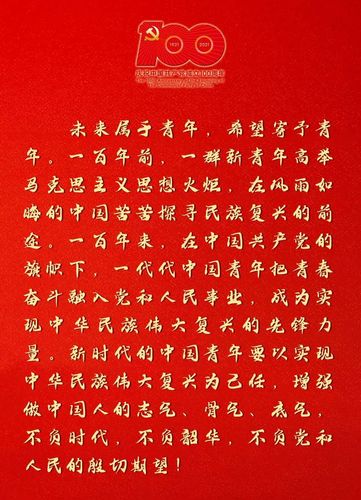 1921
2021
庆祝中国共产党成立100周年
The 100th Anniversary of the Founding of
The Communist Party of China
未来属于青年，希望寄予青
年。一百年前，一群新青年高举
马克思主义思想火炬，在风雨如
晦的中国苦苦探寻民族复兴的前
途。一百年来，在中国共产党的
旗帜下，一代代中国青年把青春
奋斗融入党和人民事业，成为实
现中华民族伟大复兴的先锋力
量。新时代的中国青年要以实现
中华民族伟大复兴为己任，增强
做中国人的志气、骨气、底气，
不负时代，不负韶华，不负党和
人民的殷切期望！